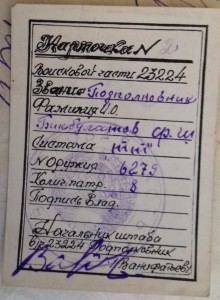 Карточка N 2
Войсковой части 23224
Звание Подполковник
Фамилия И.О.
Бикбулатов Ф.Ш
Система "ТТ"
N Оружия 6279
Колич. патр. 8
Подпись Влад.
Начальник штаба
в/ч 23224 Подполковник
Ванифатьев